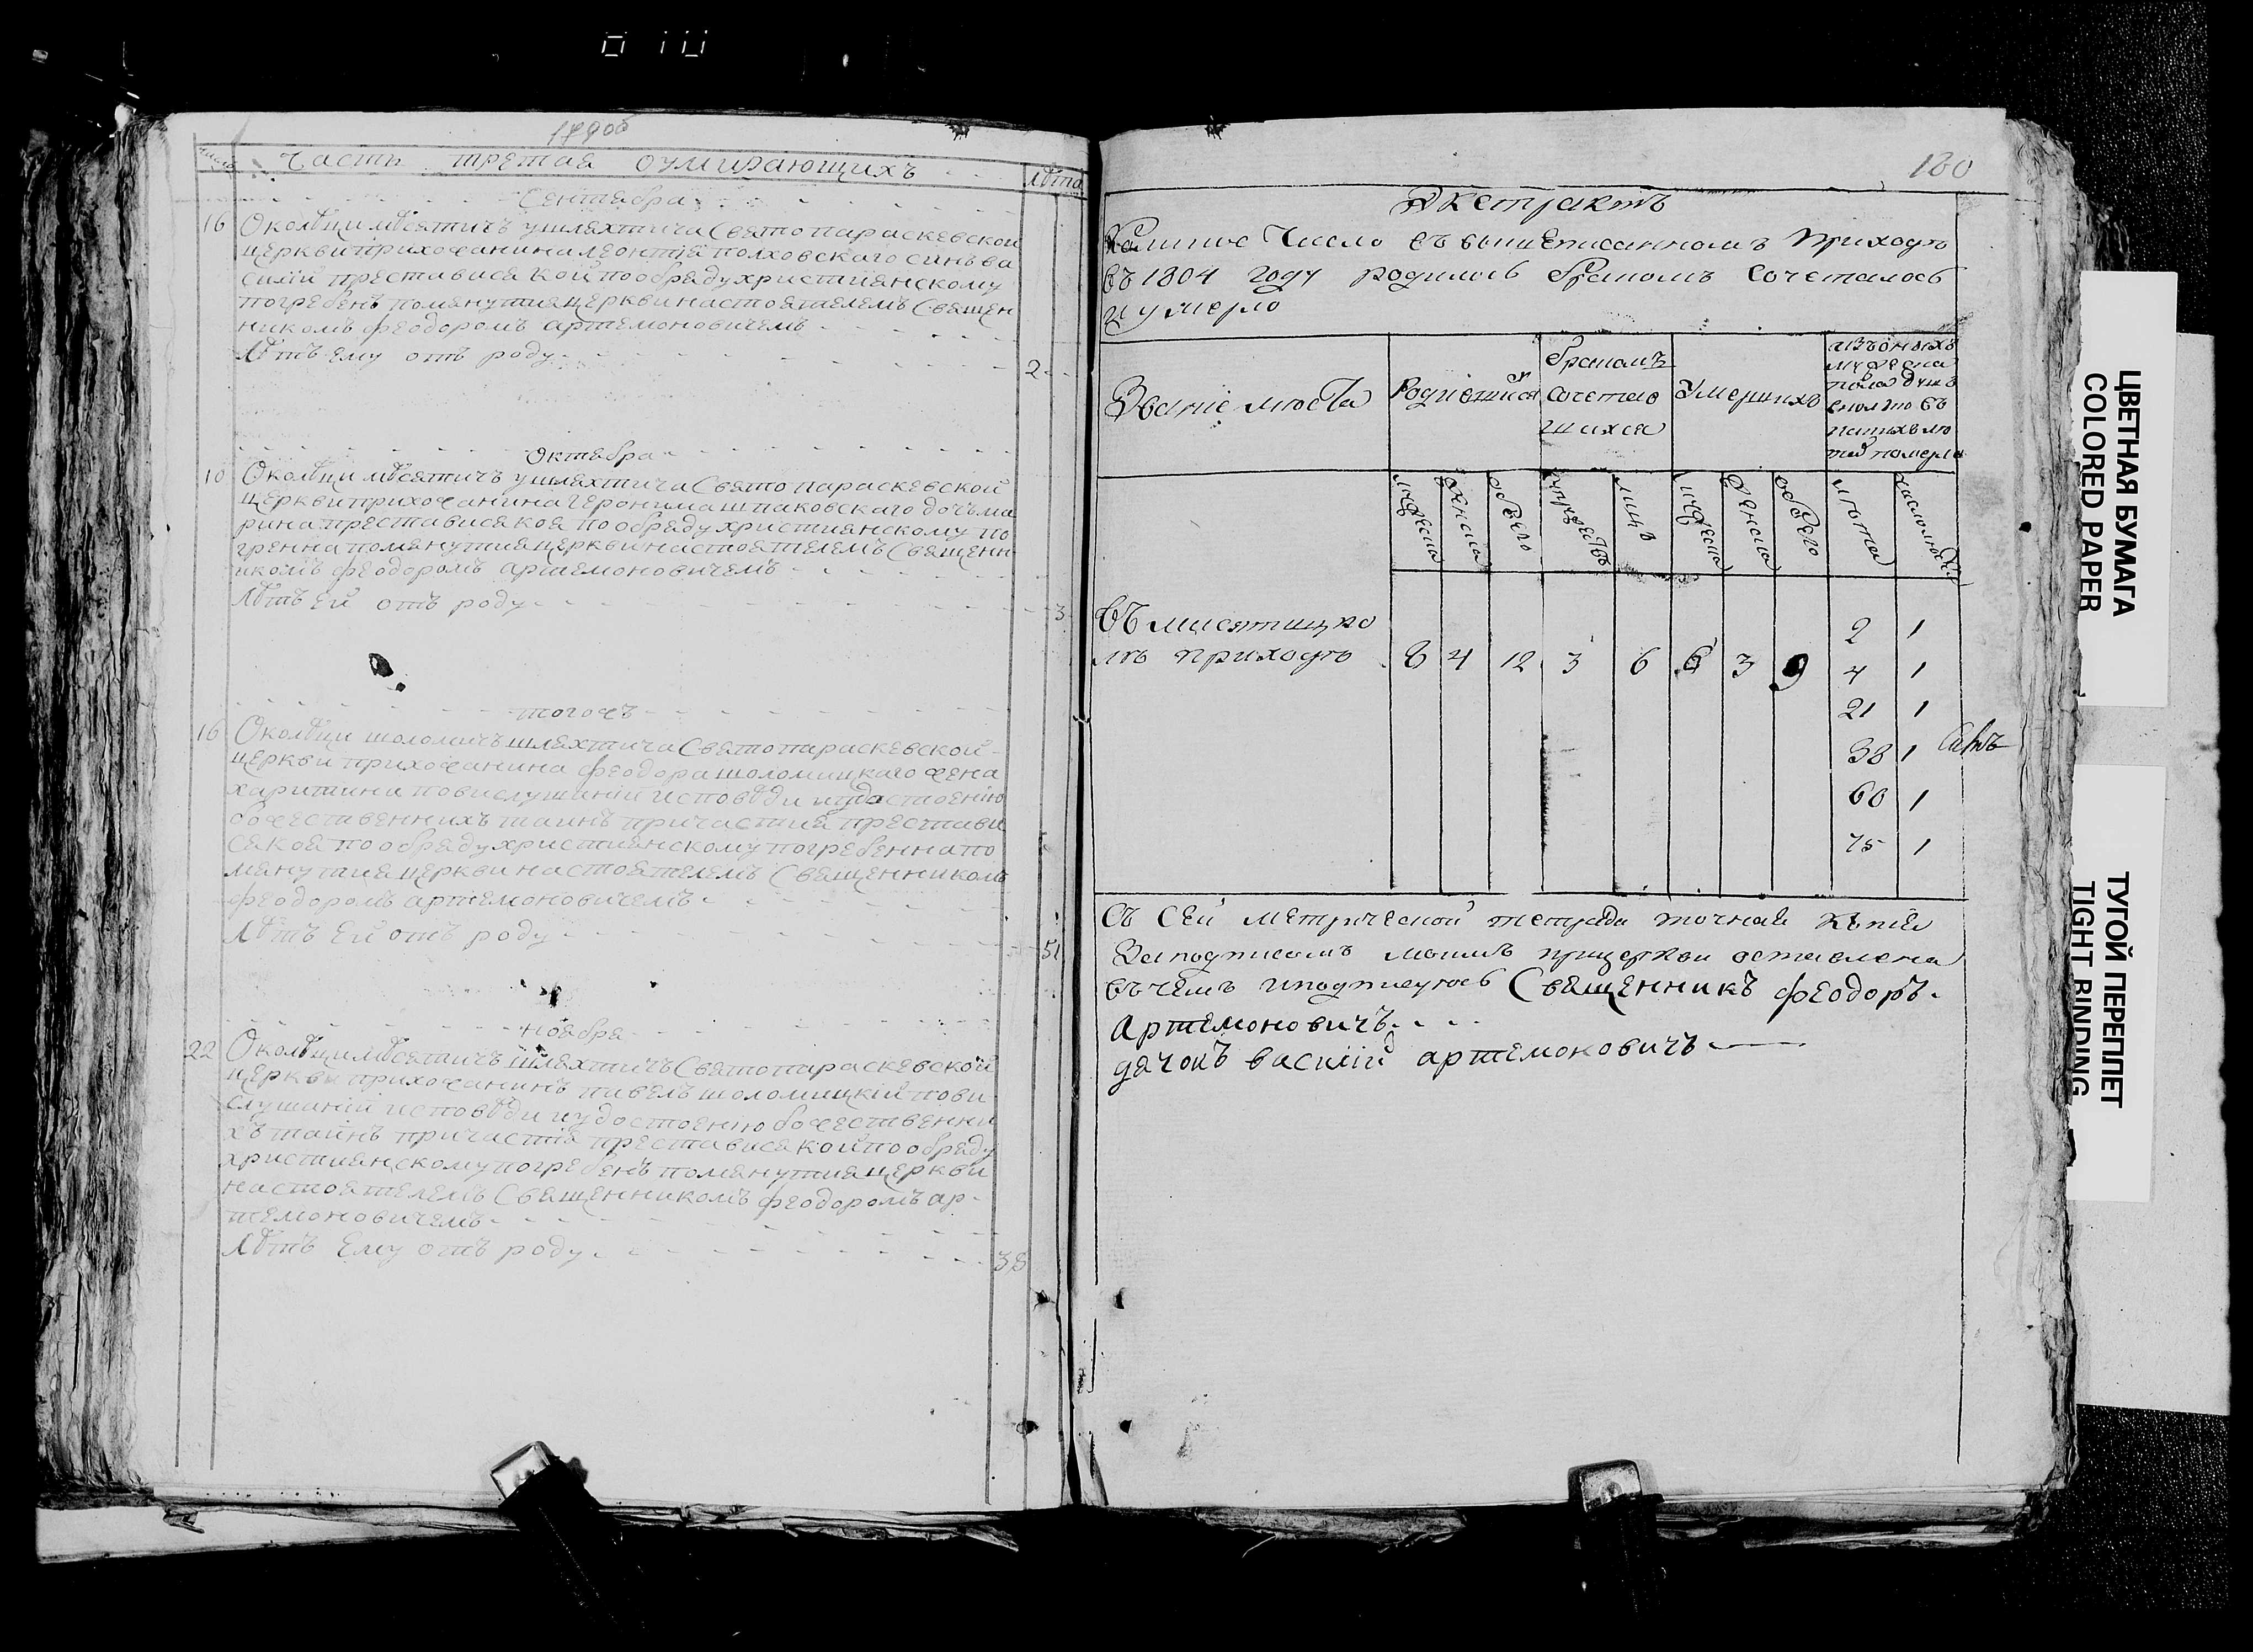 Часть третая оумирающихъ
лѣта
Сентабра
16 Околѣци мѣсятичъ ушляхтича Свято параскевской
церкви прихожанина леонтіа полховского синъ ва
силій преставися кой по обряду христіянскому
погребенъ помянутия церкви настоятелемъ Священ
никомъ феодоромъ артемоновичемъ
Лѣтъ ему отъ роду 2
Октабра
10 Околѣци мѣсятичъ ушляхтича Свято параскевской
церкви прихожанина геронима шпаковского дочъ ма
рина преставися коя по обряду християнскому по
гренна помянутия церкви настоятелемъ Священн
икомъ феодоромъ артемоновичемъ
Лѣтъ Ей отъ роду 3
тогожъ
16 Околѣци шоломичъ шляхтича Свято параскевской
церкви прихожанина феодора шоломицкаго жена
харитини по вислушаніи исповѣди и удостоенію
божественнихъ таинъ причастия престави
ся коя по обряду християнскому погребенна по
мянутия церкви настоятелемъ Священникомъ
феодоромъ артемоновичемъ
Лѣтъ Ей отъ роду 51
ноября
22 Околѣци мѣсятичъ шляхтичъ Свято параскевской
церкви прихожанинъ павелъ шоломицкій по ви
слушаніи исповѣди и удостоенію божественни
хъ таинъ причастія преставися кой по обряду
християнскому погребенъ помянутия церкви
настоятелемъ Священникомъ феодоромъ ар-
темоновичемъ
Лѣтъ Ему отъ роду 38
180
Экстрактъ
Коликое Число въ вышеписанномъ приходѣ
въ 1804 году родилось бракомъ сочеталось
и умерло
Званіе мѣста Родившихся бракомъ сочетавшихся Умершихъ
мужеска женска обоего супружествъ лицъ мужеска женска обоего лѣта число людей
Въ мисятицко
мъ приходѣ 8 4 12 3 6 6 3 9
2 1
4 1
21 1
38 1
60 1
75 1
Съ Сей метрической тетради точная копія
За подписомъ моимъ при церкви оставлена
въ чемъ и подписуюсь Священникъ феодоръ
Артемоновичъ
дячокъ василій артемоновичъ
ЦВЕТНАЯ БУМАГА
COLORED PAPER
ТУГОЙ ПЕРЕПЛЕТ
TIGHT BINDING